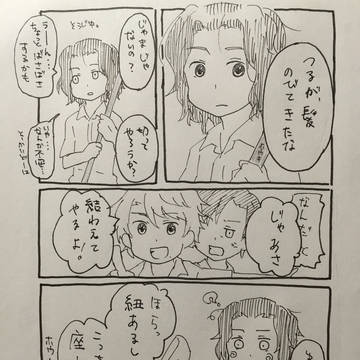 つるが、髪
のびてきたな
じゃまじゃ
ないの？
とうじゅ。
うーん…
ちょっとばさばさ
するかも
切って
やろうか？
いや…
なんか不安…
なんだて
じゃあさ
結わえて
やるよ。
ほらっ
紐あるし
こっち
座